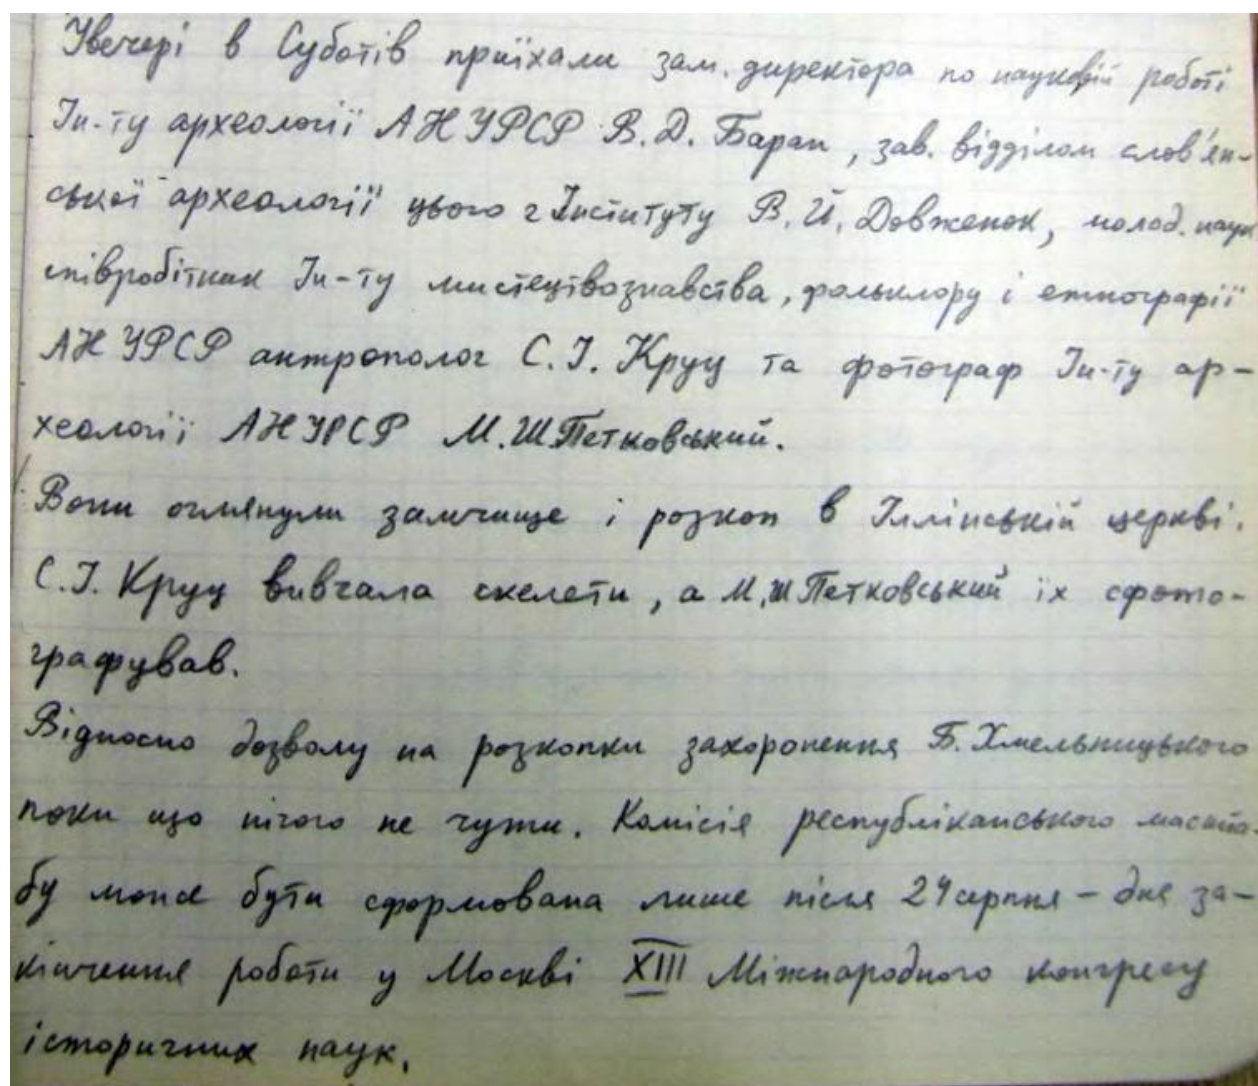 Увечері в Суботів приїхали зам. директора по науковій роботі
Ін-ту археології АН УРСР В. Д. Баран, зав. відділом слов'ян-
ської археології цього ж Інституту В. Й. Довженок, молод. наук
співробітник Ін-ту мистецтвознавства, фольклору і етнографії
АН УРСР антрополог С. І. Круц та фотограф Ін-ту ар-
хеології АН УРСР М. Ш. Петковський.
Вони оглянули замчище і розкоп в Іллінській церкві.
С. І. Круц вивчала скелети, а М. Ш Петковський їх сфото-
графував.
Відносно дозволу на розкопки захоронення Б. Хмельницького
поки що нічого не чути. Комісія республіканського масшта-
бу може бути сформована лише після 24 серпня – дня за-
кінчення роботи у Москві XIII Міжнародного конгресу
історичних наук.